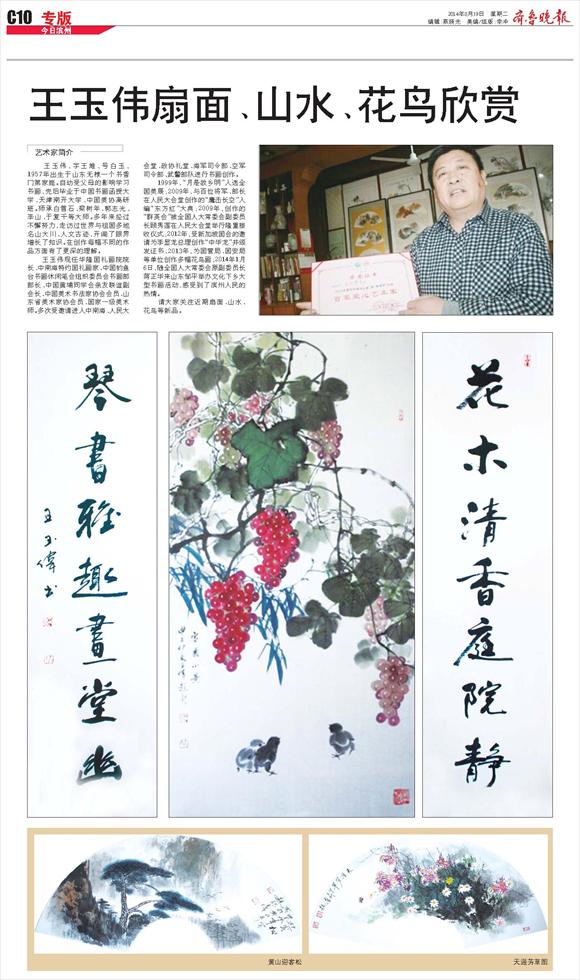 C10 专版
今日滨州
2014年8月19日 星期二
齐鲁晚报
王玉伟扇面、山水、花鸟欣赏
艺术家简介
王玉伟,字王堆,号白玉,
1957年出生于山东无棣一个书香
门第家庭。自幼受父母的影响学习
书画,先后毕业于中国书画函授大
学、天津南开大学、中国美协高研
班。师承白雪石、梁树年、郭志光、
张山、于复千等大师。多年来经过
不懈努力,走访过世界与祖国多地
名山大川、人文古迹,开阔了眼界
增长了知识。在创作每幅不同的作
品方面有了更深的理解。
王玉伟现任华隆国礼画院院
长,中南海特约国礼画家,中国钓鱼
台书画休闲笔会组织委员会书画部
部长,中国黄埔同学会亲友联谊副
会长,中国美术书法家协会会员、山
东省美术家协会员、国家一级美术
师。多次受邀请进入中南海、人民大
会堂、政协礼堂、海军司令部、空军
司令部、武警部队进行书画创作。
1999年,“月是故乡明”入选全
国美展;2009年,与百位将军、部长
在人民大会堂创作的“鹰击长空”入
编“东方红”大典;2009年,创作的
“群英会”被全国人大常委会副委员
长顾秀莲在人民大会堂举行隆重接
收仪式;2012年,受新加坡国会的邀
请为李显龙总理创作“中华龙”并颁
发证书;2013年,为国管局、国安局
等单位创作多幅花鸟画;2014年1月
6日,随全国人大常委会原副委员长
蒋正华来山东邹平举办文化下乡大
型书画活动,感受到了滨州人民的
热情。
请大家关注近期扇面、山水、
花鸟等新品。
花木清香庭院静
琴书雅趣画堂幽
王玉伟书
黄山迎客松
天涯芳草图